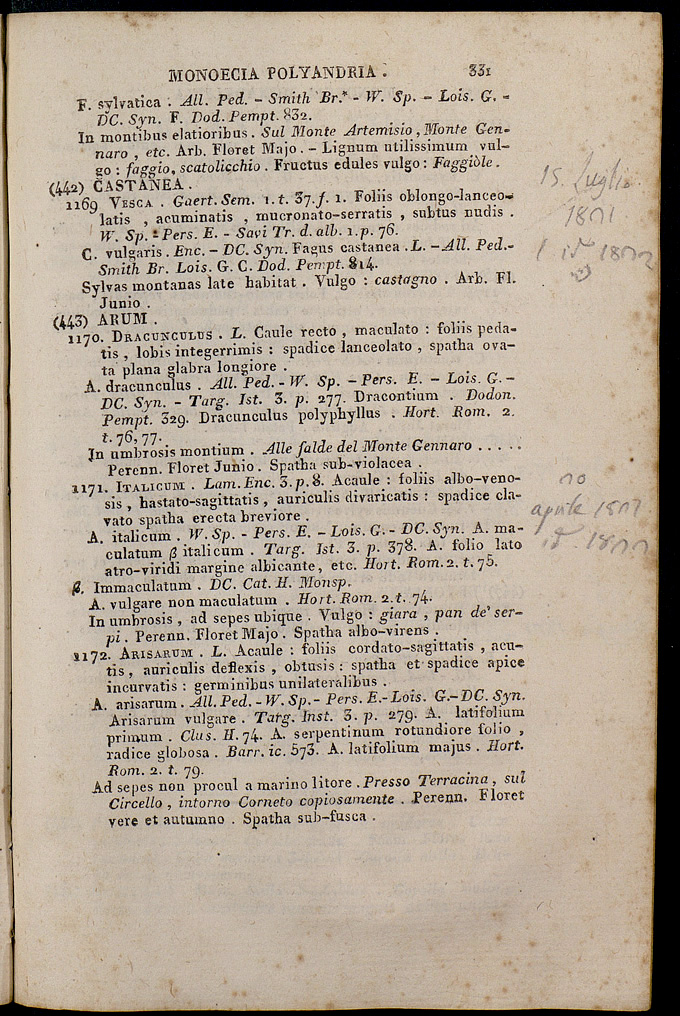 MONOECIA POLYANDRIA . 331
F. sylvatica . All. Ped. – Smith Br.* - W. Sp. – Lois. G. –
DC. Syn. F. Dod. Pempt. 832.
In montibus elatioribus. Sul Monte Artemisio , Monte Gen-
naro , etc. Arb. Floret Majo . – Lignum utilissimum vul-
go : faggio, scatolicchio . Fructus edules vulgo: Faggiòle .
(442) CASTANEA .
1169 VESCA . Gaert. Sem. 1. t. 37. f. 1. Foliis oblongo-lanceo-
latis , acuminatis , mucronato-serratis , subtus nudis .
W. Sp. - Pers. E. - Savi Tr. d. alb. 1. p. 76.
C. vulgaris . Enc. – DC. Syn. Fagus castanea . L. – All. Ped.-
Smith Br. Lois. G. C. Dod. Pempt. 814.
Sylvas montanas late habitat . Vulgo : castagno . Arb. Fl.
Junio .
(443) ARUM .
1170. DRACUNCULUS . L. Caule recto , maculato : foliis peda-
tis , lobis integerrimis : spadice lanceolato , spatha ova-
ta plana glabra longiore .
A. dracunculus . All. Ped. - W. Sp. – Pers. E. – Lois. G. –
DC. Syn. – Targ. Ist. 3. p. 277. Dracontium . Dodon.
Pempt. 329. Dracunculus polyphyllus . Hort. Rom. 2.
t. 76, 77.
In umbrosis montium . Alle falde del Monte Gennaro . . . . .
Perenn. Floret Junio . Spatha sub-violacea .
1171. ITALICUM . Lam. Enc. 3. p. 8. Acaule : foliis albo-veno-
sis , hastato-sagittatis , auriculis divaricatis : spadice cla-
vato spatha erecta breviore .
A. italicum . W. Sp. - Pers. E. – Lois. G. - DC. Syn. A. ma-
culatum β italicum . Targ. Ist. 3. p. 378. A. folio lato
atro-viridi margine albicante, etc. Hort. Rom. 2. t. 75.
β. Immaculatum . DC. Cat. H. Monsp.
A. vulgare non maculatum . Hort. Rom. 2. t. 74.
In umbrosis , ad sepes ubique . Vulgo : giara , pan de' ser-
pi . Perenn. Floret Majo . Spatha albo-virens .
1172. ARISARUM . L. Acaule : foliis cordato-sagittatis , acu-
tis , auriculis deflexis , obtusis : spatha et spadice apice
incurvatis : germinibus unilateralibus .
A. arisarum . All. Ped. - W. Sp. - Pers. E.- Lois. G.–DC. Syn.
Arisarum vulgare . Targ. Inst. 3. p. 279. A. latifolium
primum . Clus. H. 74. A. serpentinum rotundiore folio ,
radice globosa . Barr. ic. 573. A. latifolium majus . Hort.
Rom. 2. t. 79.
Ad sepes non procul a marino litore . Presso Terracina , sul
Circello , intorno Corneto copiosamente . Perenn. Floret
vere et autumno . Spatha sub-fusca .
15. Luglio
aprile